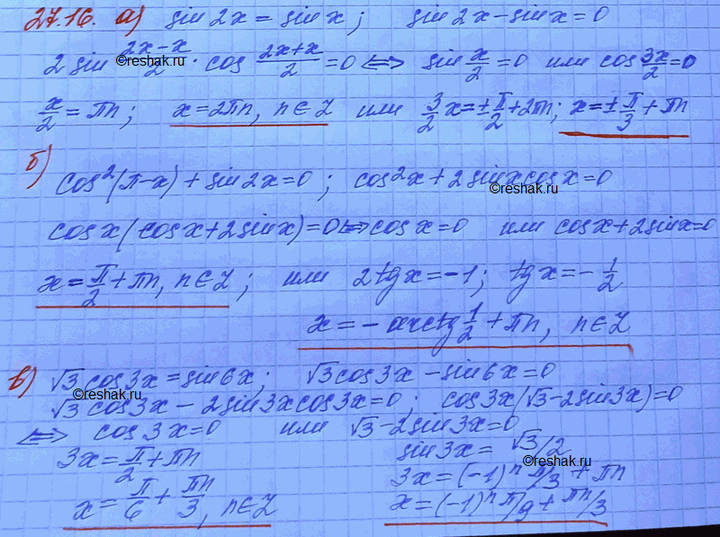 27.16. а) sin 2x = sin x; sin 2x - sin x = 0
2 sin (2x-x)/2 · cos (2x+x)/2 = 0 ⟺ sin x/2 = 0 или cos 3x/2 = 0
x/2 = πn; x = 2πn, n∈Z или 3/2 x = ±π/2 + 2πn; x = ±π/3 + πn
б) cos²(π-x) + sin 2x = 0; cos²x + 2 sin x cos x = 0
cos x (cos x + 2 sin x) = 0 ⟺ cos x = 0 или cos x + 2 sin x = 0
x = π/2 + πn, n∈Z; или 2 tg x = -1; tg x = -1/2
x = - arctg 1/2 + πn, n∈Z
в) √3 cos 3x = sin 6x; √3 cos 3x - sin 6x = 0
√3 cos 3x - 2 sin 3x cos 3x = 0; cos 3x (√3 - 2 sin 3x) = 0
⟺ cos 3x = 0 или √3 - 2 sin 3x = 0
3x = π/2 + πn sin 3x = √3/2
x = π/6 + πn/3, n∈Z 3x = (-1)ⁿ π/3 + πn
x = (-1)ⁿ π/9 + πn/3
©reshak.ru
©reshak.ru
©reshak.ru
©reshak.ru
©reshak.ru